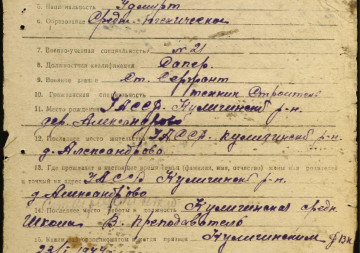 5. Национальность Удмурт
6. Образование Средне-техническое
7. Военно-учетная специальность №21
8. Должностная квалификация Сапер.
9. Военное звание Ст. Сержант
10. Гражданская специальность техник Строитель
11. Место рождения УАССР. Кулигинский р-н.
дер. Александрово
12. Последнее место жительства УАССР. Кулигинский р-н
д. Александрово
13. Где проживает в настоящее время семья (фамилия, имя, отчество)
УАССР Кулигинский р-н
д. Александрово
14. Последнее место работы и должность Кулигинская средн.
Школа В. Преподаватель
15. Каким военкоматом призван Кулигинским РВК
23/I 1944